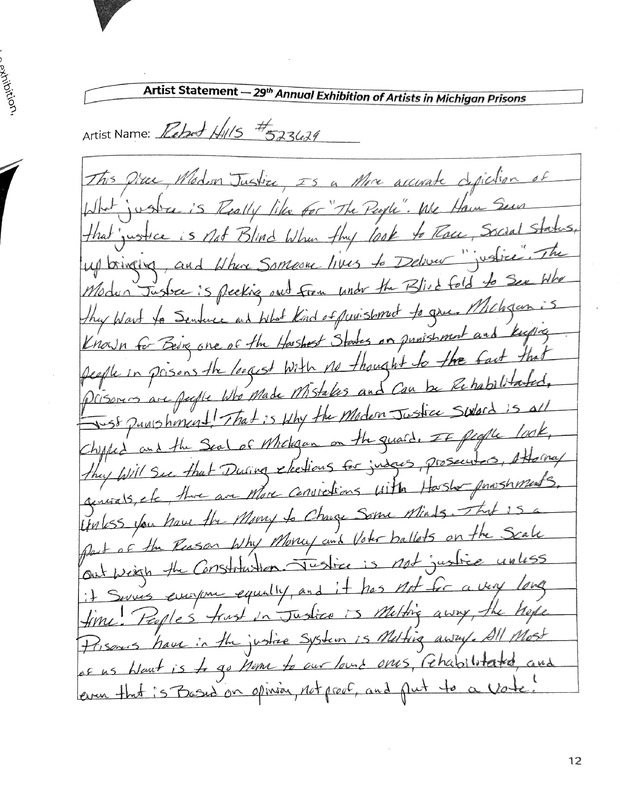 exhibition,
Artist Statement — 29th Annual Exhibition of Artists in Michigan Prisons
Artist Name: Robert Hills #523629
This piece, Modern Justice, Is a More accurate dpiction of
What justice is Really like for "The People". We Have Seen
that justice is not Blind When they look to Race, Social Status,
up bringing, and Where Someone lives to Deliver "justice". The
Modern Justice is peeking out from under the Blind fold to See Who
they Want to Sentence and What Kind of punishment to give. Michigan is
Known for Being one of the Harshest States on punishment and keeping
people in prisons the longest With no thought to the fact that
prisoners are people Who Made Mistakes and Can be Rehabilitated,
Just punishment! That is Why the Modern Justice Sword is all
Chipped and the Seal of Michigan on the guard. If people look,
they Will See that During elections for judges, prosecutors, Attorney
generals, etc there are More Convictions with Harsher punishments,
Unless you have the Money to Change Some Minds. That is a
part of the Reason Why Money and Voter ballots on the Scale
out weigh the Constitution. Justice is not justice unless
it Serves everyone equally, and it has not for a very long
time! People's trust in Justice is Melting away, the hope
Prisoners have in the justice System is Melting away. All Most
of us Want is to go Home to our loved ones, Rehabilitated, and
even that is Based on opinion, not proof, and put to a Vote!
12